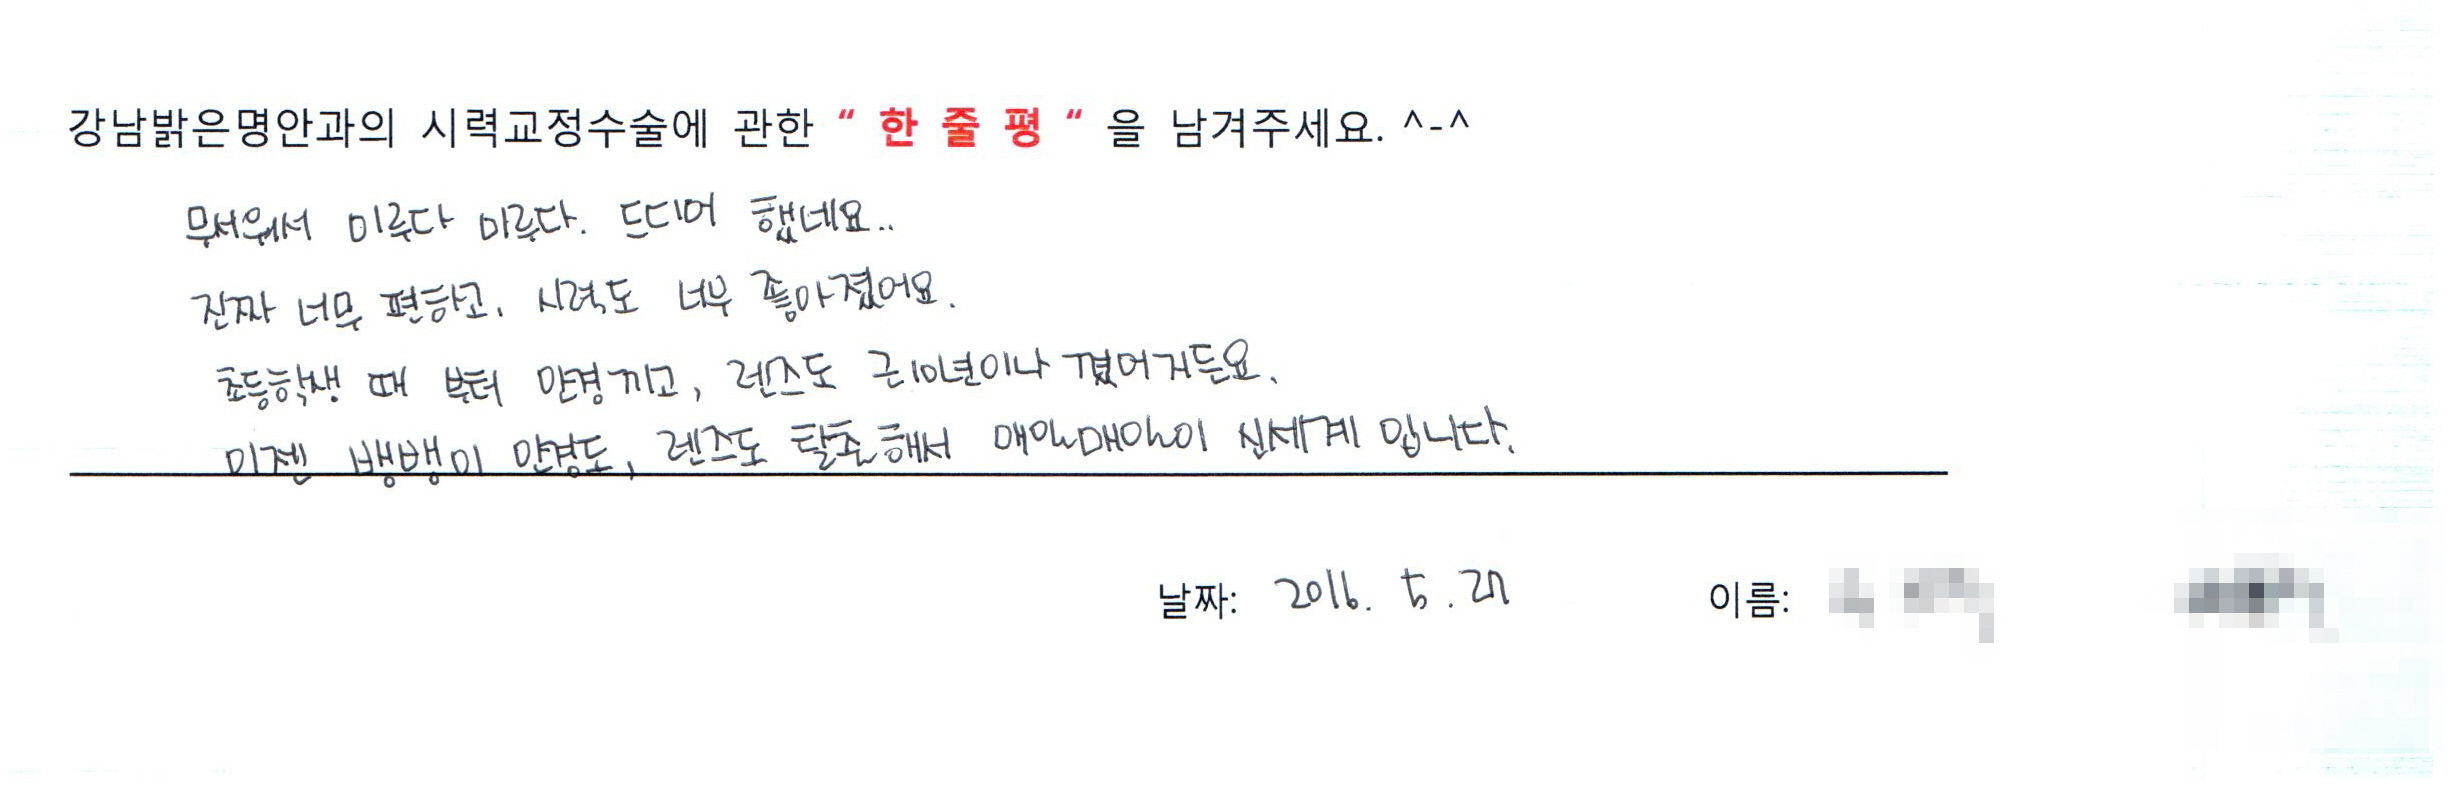 강남밝은명안과의 시력교정수술에 관한 “ 한 줄 평 “ 을 남겨주세요. ^-^
무서워서 미루다 미루다. 드디어 했네요..
진짜 너무 편하고, 시력도 너무 좋아졌어요.
초등학생 때 부터 안경끼고, 렌즈도 근10년이나 꼈어거든요.
이젠 뱅뱅이 안경도, 렌즈도 탈출해서 매일매일이 신세계 입니다.
날짜: 2016. 5. 27 이름: